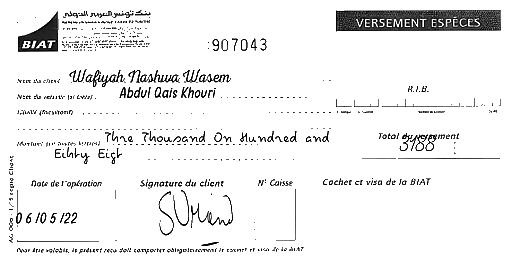 بنك تونس العربي الدولي
BIAT
VERSEMENT ESPÈCES
:907043
Nom du client Wafiyah Nashwa Wasem
Abdul Qais Khouri
R.I.B.
Libellé (facultatif)
Montant (en toutes lettres) Thre Thousand On Hundred and
Eihty Eigt
Total du versement
3188
Date de l'opération
Signature du client
N° Caisse
Cachet et visa de la BIAT
06/05/22
Pour être valable, le présent reçu doit comporter obligatoirement le cachet et visa de la BIAT